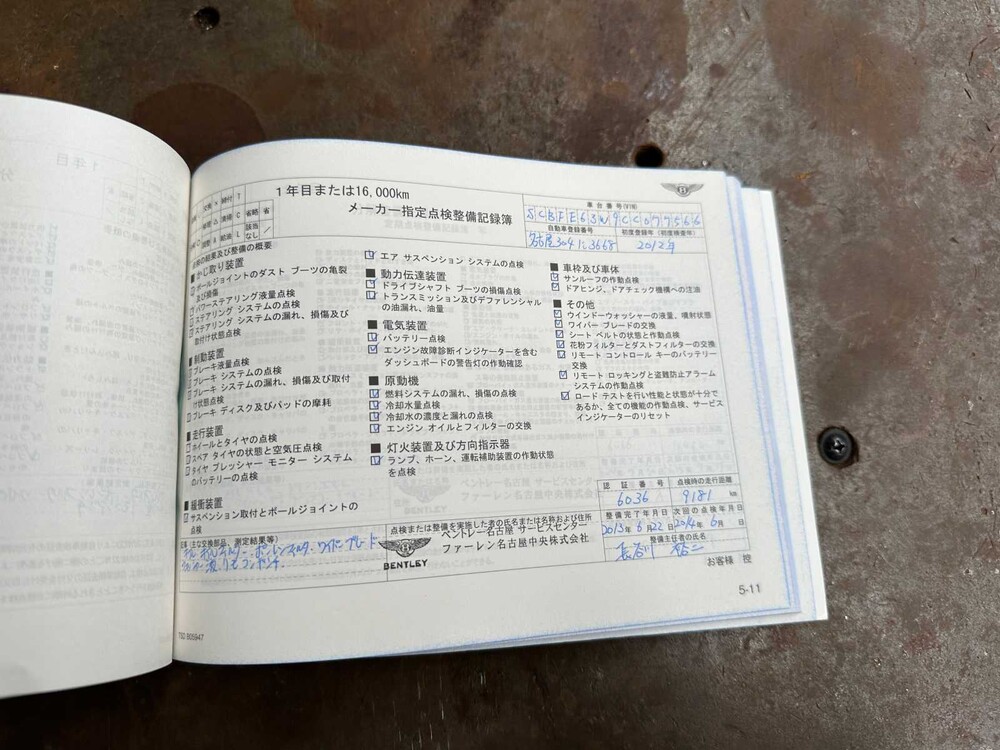 1年目または16,000km
メーカー指定点検整備記録簿
車台番号(VIN)
SCBFE63W9CC077566
自動車登録番号
初度登録年(初度検査年)
名古屋304 に3668
2012年
交換 × 締付 T
清掃 C
給油 L
省略 省
該当なし ／
点検の結果及び整備の概要
■ かじ取り装置
ボールジョイントのダスト ブーツの亀裂
及び損傷
パワーステアリング液量点検
ステアリング システムの点検
ステアリング システムの漏れ、損傷及び
取付け状態点検
■ 制動装置
ブレーキ液量点検
ブレーキ システムの点検
ブレーキ システムの漏れ、損傷及び取付
け状態点検
ブレーキ ディスク及びパッドの摩耗
■ 走行装置
ホイールとタイヤの点検
スペア タイヤの状態と空気圧点検
タイヤ プレッシャー モニター システム
のバッテリーの点検
■ 緩衝装置
サスペンション取付とボールジョイントの
点検
エア サスペンション システムの点検
■ 動力伝達装置
ドライブシャフト ブーツの損傷点検
トランスミッション及びデファレンシャル
の油漏れ、油量
■ 電気装置
バッテリー点検
エンジン故障診断インジケーターを含む
ダッシュボードの警告灯の作動確認
■ 原動機
燃料システムの漏れ、損傷の点検
冷却水量点検
冷却水の濃度と漏れの点検
エンジン オイルとフィルターの交換
■ 灯火装置及び方向指示器
ランプ、ホーン、運転補助装置の作動状態
を点検
■ 車枠及び車体
サンルーフの作動点検
ドアヒンジ、ドアチェック機構への注油
■ その他
ウインドーウォッシャーの液量、噴射状態
ワイパー ブレードの交換
シート ベルトの状態と作動点検
花粉フィルターとダストフィルターの交換
リモート コントロール キーのバッテリー
交換
リモート ロッキングと盗難防止アラーム
システムの作動点検
ロード テストを行い性能と状態が十分で
あるか、全ての機能の作動点検、サービス
インジケーターのリセット
記事（主な交換部品、測定結果等）
BENTLEY
点検または整備を実施した者の氏名または名称および住所
ベントレー名古屋 サービスセンター
ファーレン名古屋中央株式会社
認証番号
点検時の走行距離
6036
9181 km
整備完了年月日
次回の点検年月日
2013年6月22日
2014年6月 日
整備主任者の氏名
お客様 控
5-11
TSD 805947